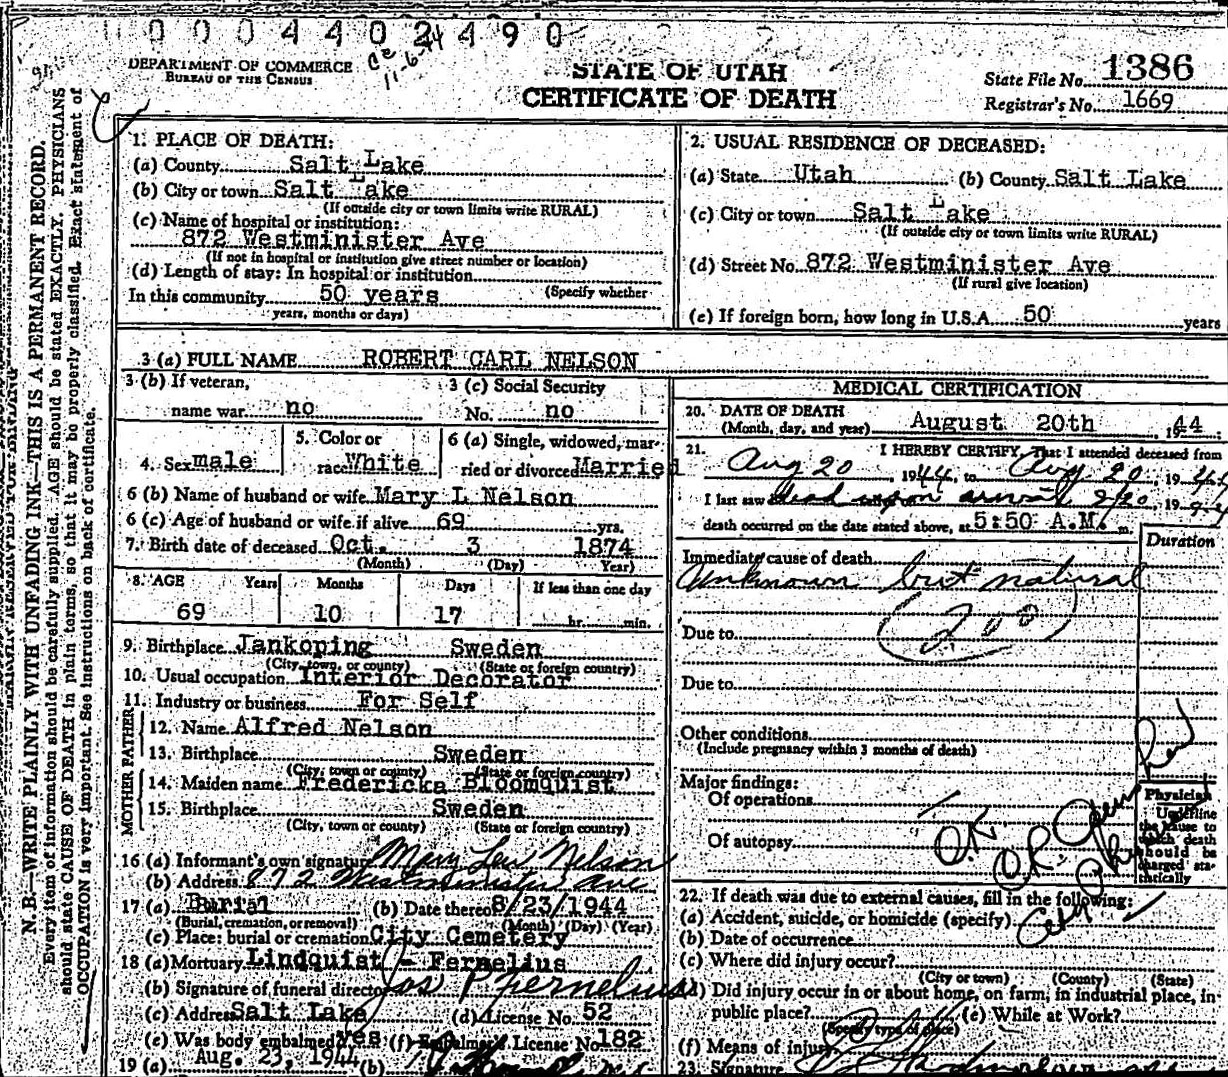 0 0 0 4 4 0 2 4 9 0
11-6-44
DEPARTMENT OF COMMERCE
BUREAU OF THE CENSUS
STATE OF UTAH
CERTIFICATE OF DEATH
State File No. 1386
Registrar's No. 1669
N. B.—WRITE PLAINLY WITH UNFADING INK—THIS IS A PERMANENT RECORD.
Every item of information should be carefully supplied. AGE should be stated EXACTLY. PHYSICIANS
should state CAUSE OF DEATH in plain terms, so that it may be properly classified. Exact statement of
OCCUPATION is very important. See instructions on back of certificate.
1. PLACE OF DEATH:
(a) County Salt Lake
(b) City or town Salt Lake
(If outside city or town limits write RURAL)
(c) Name of hospital or institution:
872 Westminister Ave
(If not in hospital or institution give street number or location)
(d) Length of stay: In hospital or institution
In this community 50 years (Specify whether
years, months or days)
2. USUAL RESIDENCE OF DECEASED:
(a) State Utah (b) County Salt Lake
(c) City or town Salt Lake
(If outside city or town limits write RURAL)
(d) Street No. 872 Westminister Ave
(If rural give location)
(e) If foreign born, how long in U.S.A. 50 years
3 (a) FULL NAME ROBERT CARL NELSON
3 (b) If veteran,
name war no
3 (c) Social Security
No. no
4. Sex male
5. Color or
race White
6 (a) Single, widowed, mar-
ried or divorced Married
6 (b) Name of husband or wife Mary L Nelson
6 (c) Age of husband or wife if alive 69 yrs.
7. Birth date of deceased Oct. 3 1874
(Month) (Day) Year)
8. AGE Years Months Days If less than one day
69 10 17 hr. min.
9. Birthplace Jankoping Sweden
(City, town, or county) (State or foreign country)
10. Usual occupation Interior Decorator
11. Industry or business For Self
FATHER
12. Name Alfred Nelson
13. Birthplace Sweden
(City, town or county) (State or foreign country)
MOTHER
14. Maiden name Fredericka Bloomquist
15. Birthplace Sweden
(City, town or county) (State or foreign country)
16 (a) Informant's own signature Mary Lou Nelson
(b) Address 872 Westminister Ave
17 (a) Burial (b) Date thereof 8/23/1944
(Burial, cremation, or removal) (Month) (Day) (Year)
(c) Place: burial or cremation City Cemetery
18 (a) Mortuary Lindquist - Fernelius
(b) Signature of funeral director Jos P Fernelius
(c) Address Salt Lake (d) License No. 52
(e) Was body embalmed yes (f) Embalmer's License No. 182
19 (a) Aug. 23, 1944 (b)
MEDICAL CERTIFICATION
20. DATE OF DEATH
(Month, day, and year) August 20th, 1944
21. I HEREBY CERTIFY, That I attended deceased from
Aug 20, 1944, to Aug 20, 1944
I last saw dead upon arrival 8/20, 1944
death occurred on the date stated above, at 5:50 A.M. m.
Duration
Immediate cause of death
Unknown but natural
(200)
Due to
Due to
Other conditions
(Include pregnancy within 3 months of death)
Major findings:
Of operations
Of autopsy
O.K.
Physician
Underline
the cause to
which death
should be
charged sta-
tistically
22. If death was due to external causes, fill in the following:
(a) Accident, suicide, or homicide (specify)
(b) Date of occurrence
(c) Where did injury occur?
(City or town) (County) (State)
(d) Did injury occur in or about home, on farm, in industrial place, in
public place? (e) While at Work?
(Specify type of place)
(f) Means of injury
23. Signature